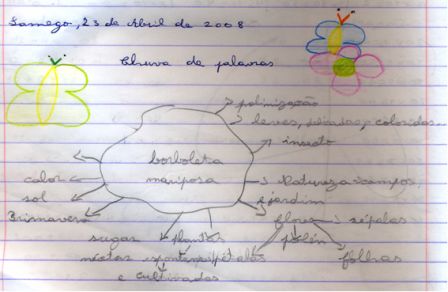 Lamego, 23 de Abril de 2008
Chuva de palavras
polinização
leves, lindas, coloridas
insecto
borboleta
mariposa
calor
Natureza campos,
sol
e jardim
Primavera
flores sépalas
sugar plantas pólen
néctar espontaneas pétalas folhas
e cultivadas